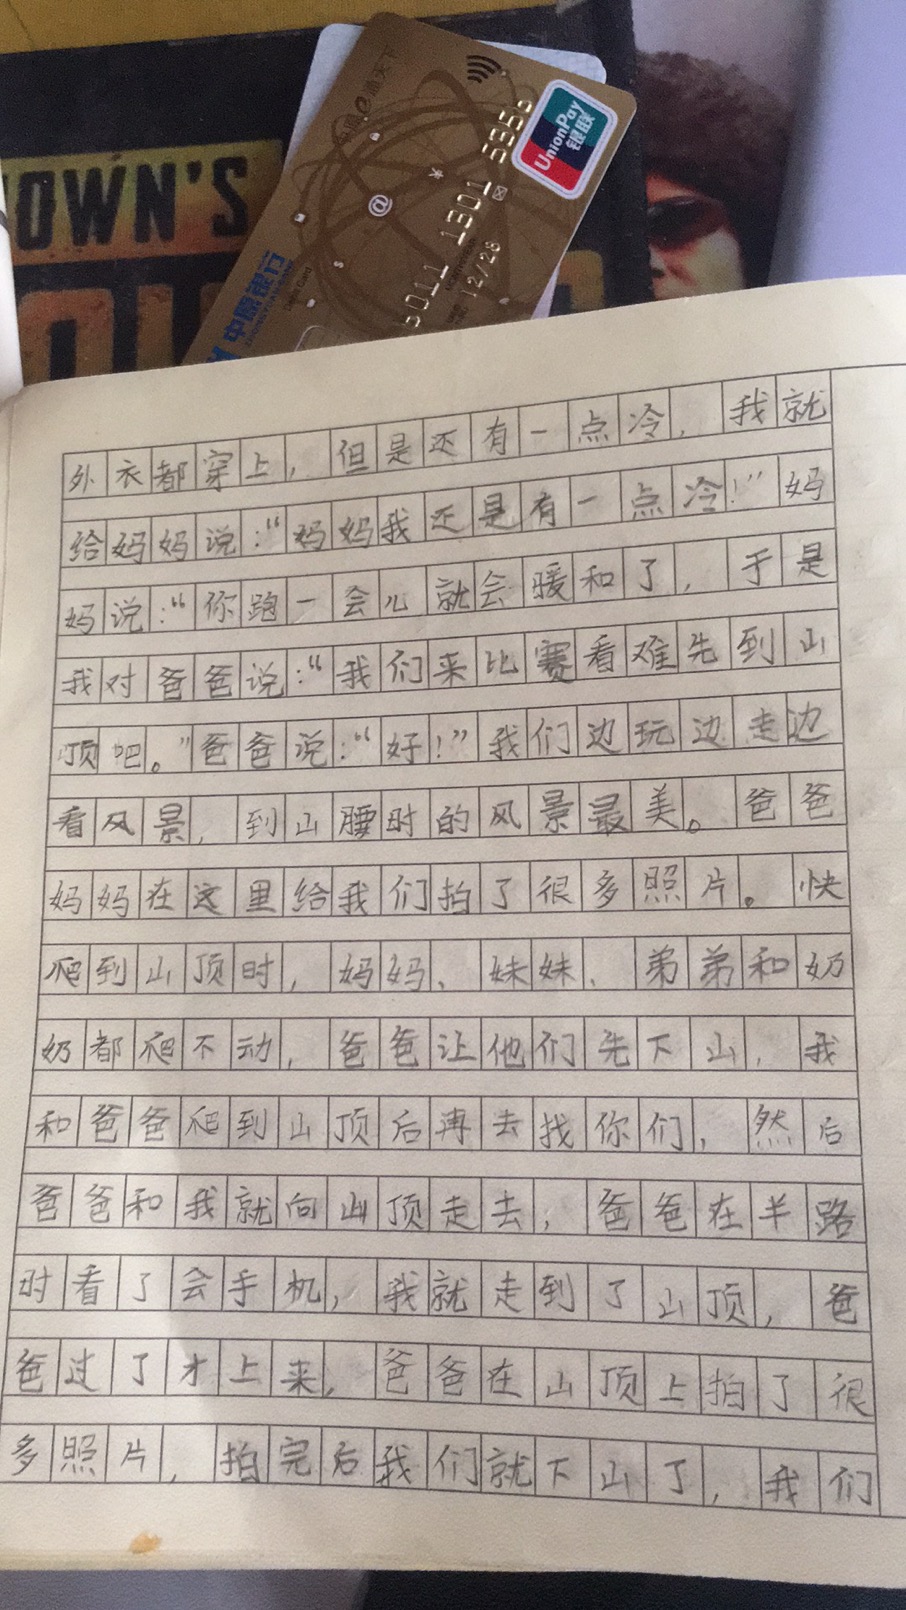 OWN'S
中国e通天下
UnionPay
银联
6011 1301 5356
12/28
中原银行
Debit Card
@
外衣都穿上，但是还有一点冷，我就
给妈妈说：“妈妈我还是有一点冷！”妈
妈说：“你跑一会儿就会暖和了，于是
我对爸爸说：“我们来比赛看难先到山
顶吧。”爸爸说：“好！”我们边玩边走边
看风景，到山腰时的风景最美。爸爸
妈妈在这里给我们拍了很多照片。快
爬到山顶时，妈妈、妹妹、弟弟和奶
奶都爬不动，爸爸让他们先下山，我
和爸爸爬到山顶后再去找你们，然后
爸爸和我就向山顶走去，爸爸在半路
时看了会手机，我就走到了山顶，爸
爸过了才上来，爸爸在山顶上拍了很
多照片，拍完后我们就下山了，我们